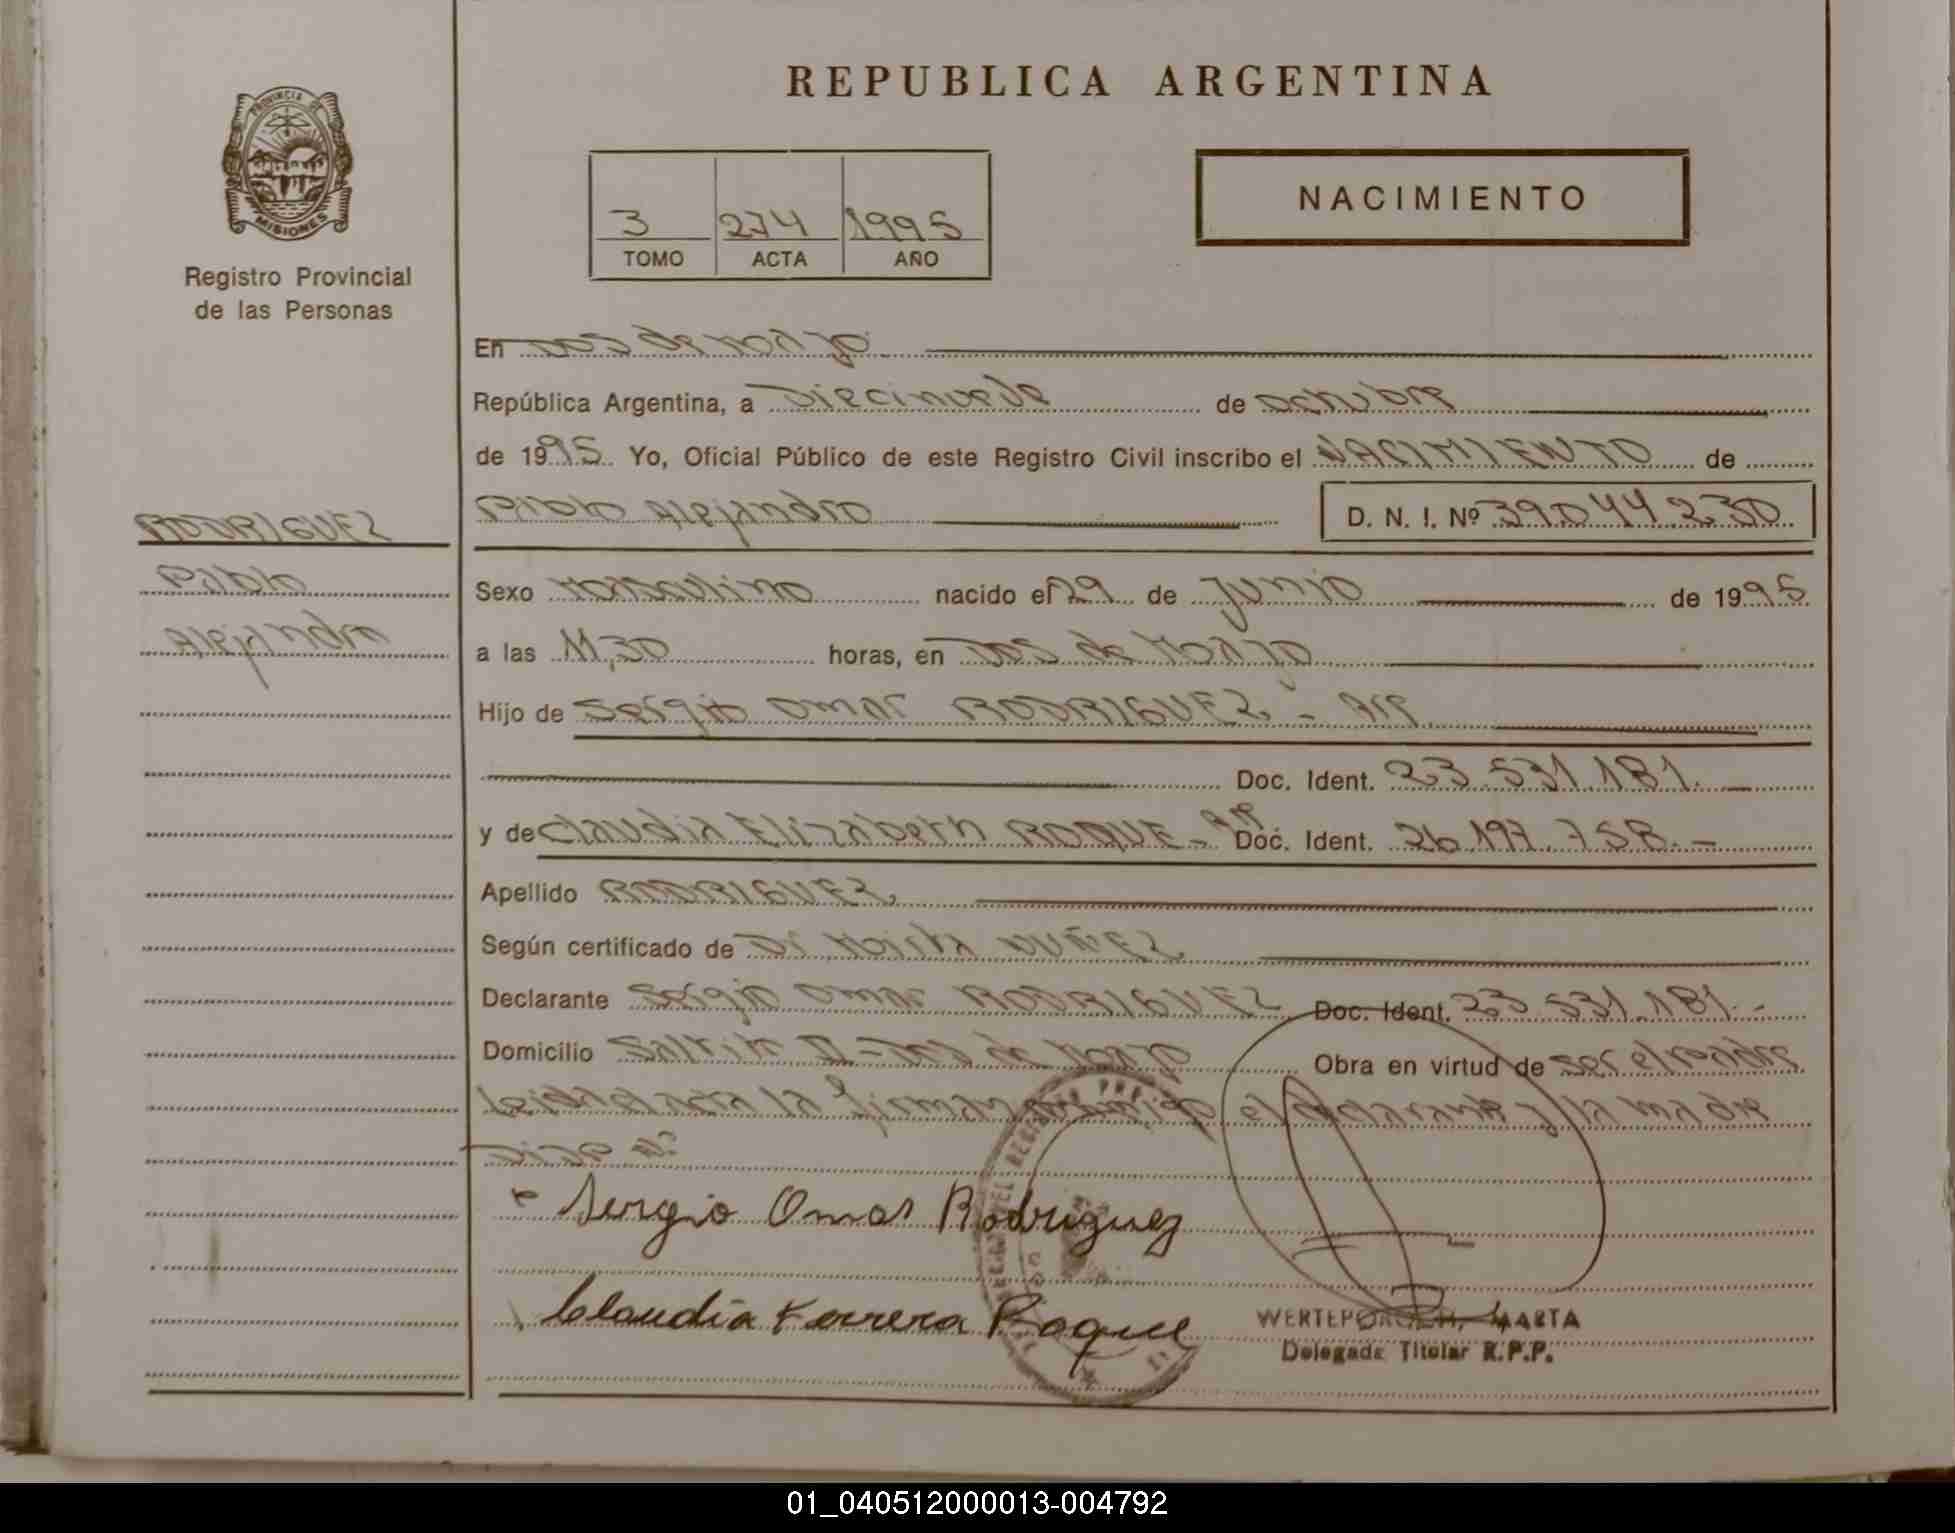 REPUBLICA ARGENTINA
PROVINCIA DE
MISIONES
Registro Provincial
de las Personas
3 274 1995
TOMO ACTA AÑO
NACIMIENTO
En Dos de Mayo
República Argentina, a Diecinueve de octubre
de 1995 Yo, Oficial Público de este Registro Civil inscribo el NACIMIENTO de
RODRIGUEZ
Pablo
Alejandro
Pablo Alejandro D. N. I. Nº 39.044.230
Sexo Masculino nacido el 29 de Junio de 1995
a las 11,30 horas, en Dos de Mayo
Hijo de Sergio Omar RODRIGUEZ - Arg
Doc. Ident. 23.531.181.-
y de Claudia Elizabeth ROQUE - Arg. Doc. Ident. 26.197.758.-
Apellido RODRIGUEZ
Según certificado de Dr. Marta NUÑEZ
Declarante Sergio Omar RODRIGUEZ Doc. Ident. 23.531.181.-
Domicilio II - Dos de Mayo Obra en virtud de ser el padre
Leida el acta la firman conmigo el declarante y la madre
Sergio Omar Rodriguez
Claudia Roque
MARTA
Delegada Titular R.P.P.
01_040512000013-004792